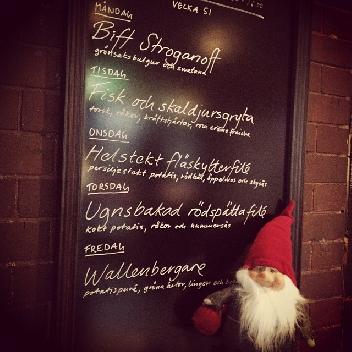 VECKA 51
MÅNDAG
Biff Stroganoff
grönsaks bulgur och smetana
TISDAG
Fisk och skaldjursgryta
torsk, räkor, kräftstjärtar, rom creme fraiche
ONSDAG
Helstekt fläskytterfilé
persiljeslungad potatis, rödkål, äppelmos och skysås
TORSDAG
Ugnsbakad rödspättafilé
kokt potatis, räkor och hummersås
FREDAG
Wallenbergare
potatispuré, gröna ärtor, lingon och